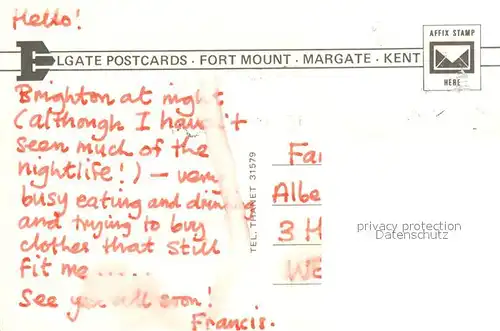 Hello!
AFFIX STAMP
HERE
ELGATE POSTCARDS · FORT MOUNT · MARGATE · KENT
Brighton at night
(although I haven't
seen much of the
nightlife!) - very
busy eating and drinking
and trying to buy
clothes that still
fit me .....
See you all soon!
Francis.
TEL. THANET 31579
Fa
Albe
3 H
WE
privacy protection
Datenschutz